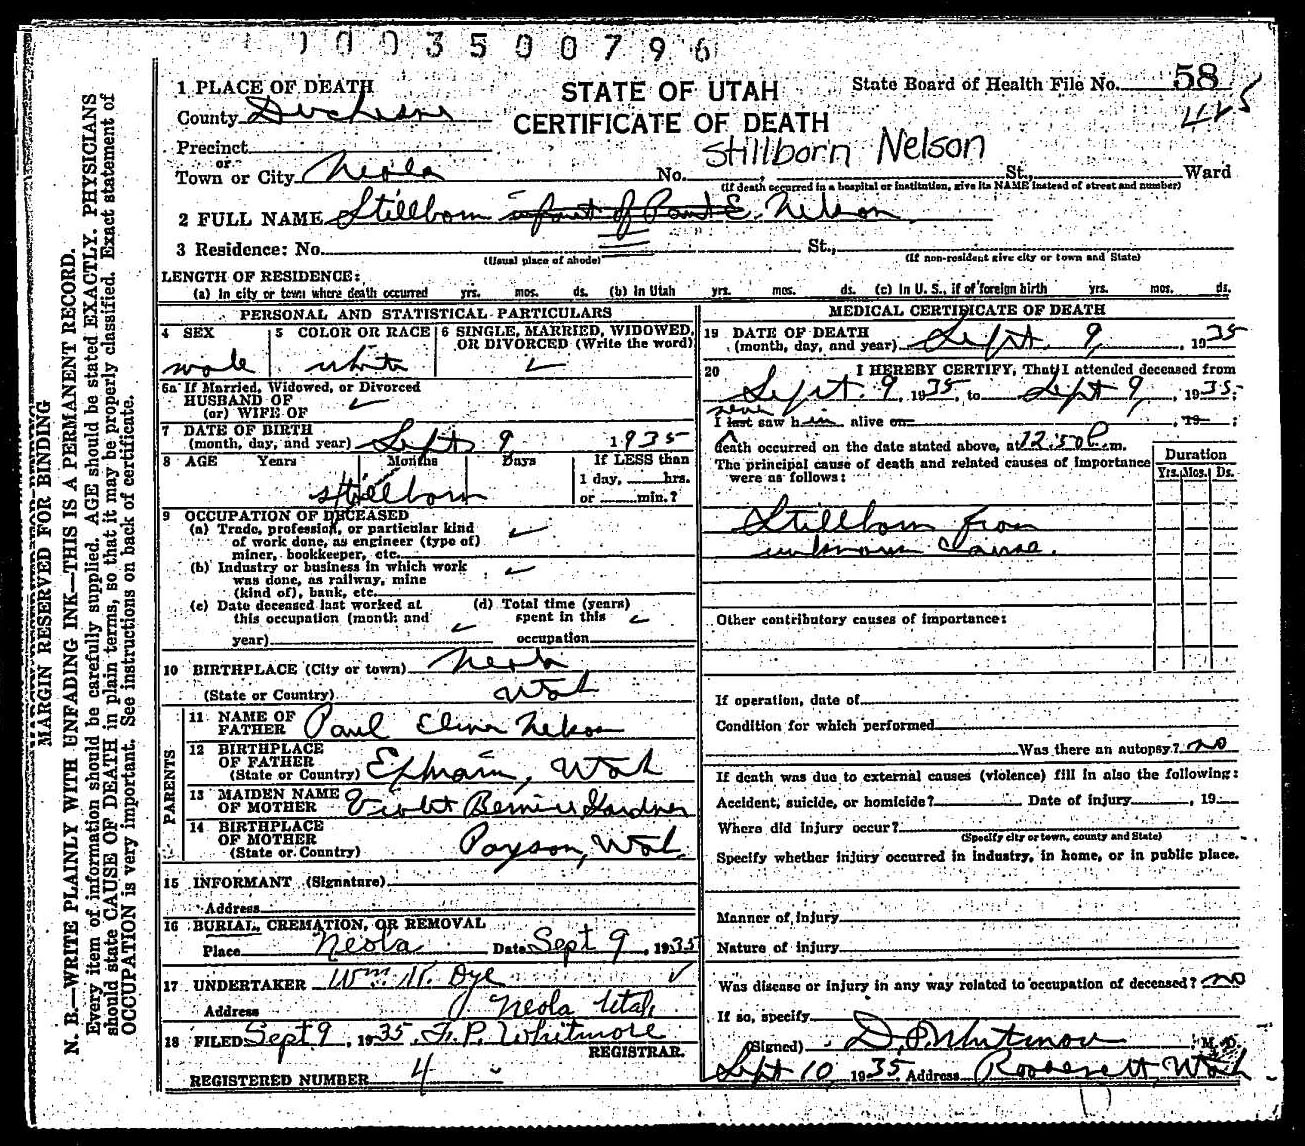 0003500796
1 PLACE OF DEATH
STATE OF UTAH
State Board of Health File No. 58
County Duchesne
CERTIFICATE OF DEATH
425
Precinct
Stillborn Nelson
or
Town or City Neola No. , St., Ward
(If death occurred in a hospital or institution, give its NAME instead of street and number)
2 FULL NAME Stillborn infant of Paul E. Nelson
3 Residence: No. St.,
(Usual place of abode) (If non-resident give city or town and State)
LENGTH OF RESIDENCE:
(a) In city or town where death occurred yrs. mos. ds. (b) In Utah yrs. mos. ds. (c) In U. S., if of foreign birth yrs. mos. ds.
PERSONAL AND STATISTICAL PARTICULARS
4 SEX 5 COLOR OR RACE 6 SINGLE, MARRIED, WIDOWED, OR DIVORCED (Write the word)
male white
6a If Married, Widowed, or Divorced
HUSBAND OF
(or) WIFE OF
7 DATE OF BIRTH
(month, day, and year) Sept 9 1935
8 AGE Years Months Days If LESS than
1 day, hrs.
stillborn or min.?
9 OCCUPATION OF DECEASED
(a) Trade, profession, or particular kind
of work done, as engineer (type of)
miner, bookkeeper, etc.
(b) Industry or business in which work
was done, as railway, mine
(kind of), bank, etc.
(c) Date deceased last worked at
this occupation (month and
year)
(d) Total time (years)
spent in this
occupation
10 BIRTHPLACE (City or town) Neola
(State or Country) Utah
PARENTS
11 NAME OF
FATHER Paul Nelson
12 BIRTHPLACE
OF FATHER
(State or Country) Ephraim, Utah
13 MAIDEN NAME
OF MOTHER Violet Bernice Gardner
14 BIRTHPLACE
OF MOTHER
(State or Country) Payson, Utah
15 INFORMANT (Signature)
Address
16 BURIAL, CREMATION, OR REMOVAL
Place Neola Date Sept 9, 1935
17 UNDERTAKER Wm. Dye
Address Neola Utah
18 FILED Sept 9, 1935. Whitmore
REGISTRAR.
REGISTERED NUMBER 4
MEDICAL CERTIFICATE OF DEATH
19 DATE OF DEATH
(month, day, and year) Sept. 9, 1935
20 I HEREBY CERTIFY, That I attended deceased from
Sept. 9, 1935, to Sept 9, 1935;
never
I last saw him alive on , 19 ;
death occurred on the date stated above, at 12:50 P. m.
The principal cause of death and related causes of importance
were as follows:
Duration
Yrs. Mos. Ds.
Stillborn from
unknown cause.
Other contributory causes of importance:
If operation, date of
Condition for which performed
Was there an autopsy? no
If death was due to external causes (violence) fill in also the following:
Accident, suicide, or homicide? Date of injury , 19
Where did injury occur?
(Specify city or town, county and State)
Specify whether injury occurred in industry, in home, or in public place.
Manner of injury
Nature of injury
Was disease or injury in any way related to occupation of deceased? no
If so, specify
(Signed) D. P. Whitmore, M. D.
Sept 10, 1935. Address Roosevelt, Utah
MARGIN RESERVED FOR BINDING
N. B.—WRITE PLAINLY WITH UNFADING INK—THIS IS A PERMANENT RECORD.
Every item of information should be carefully supplied. AGE should be stated EXACTLY. PHYSICIANS
should state CAUSE OF DEATH in plain terms, so that it may be properly classified. Exact statement of
OCCUPATION is very important. See instructions on back of certificate.